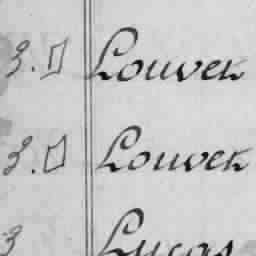 3. Louvek
3. Louvek
3 Lucas